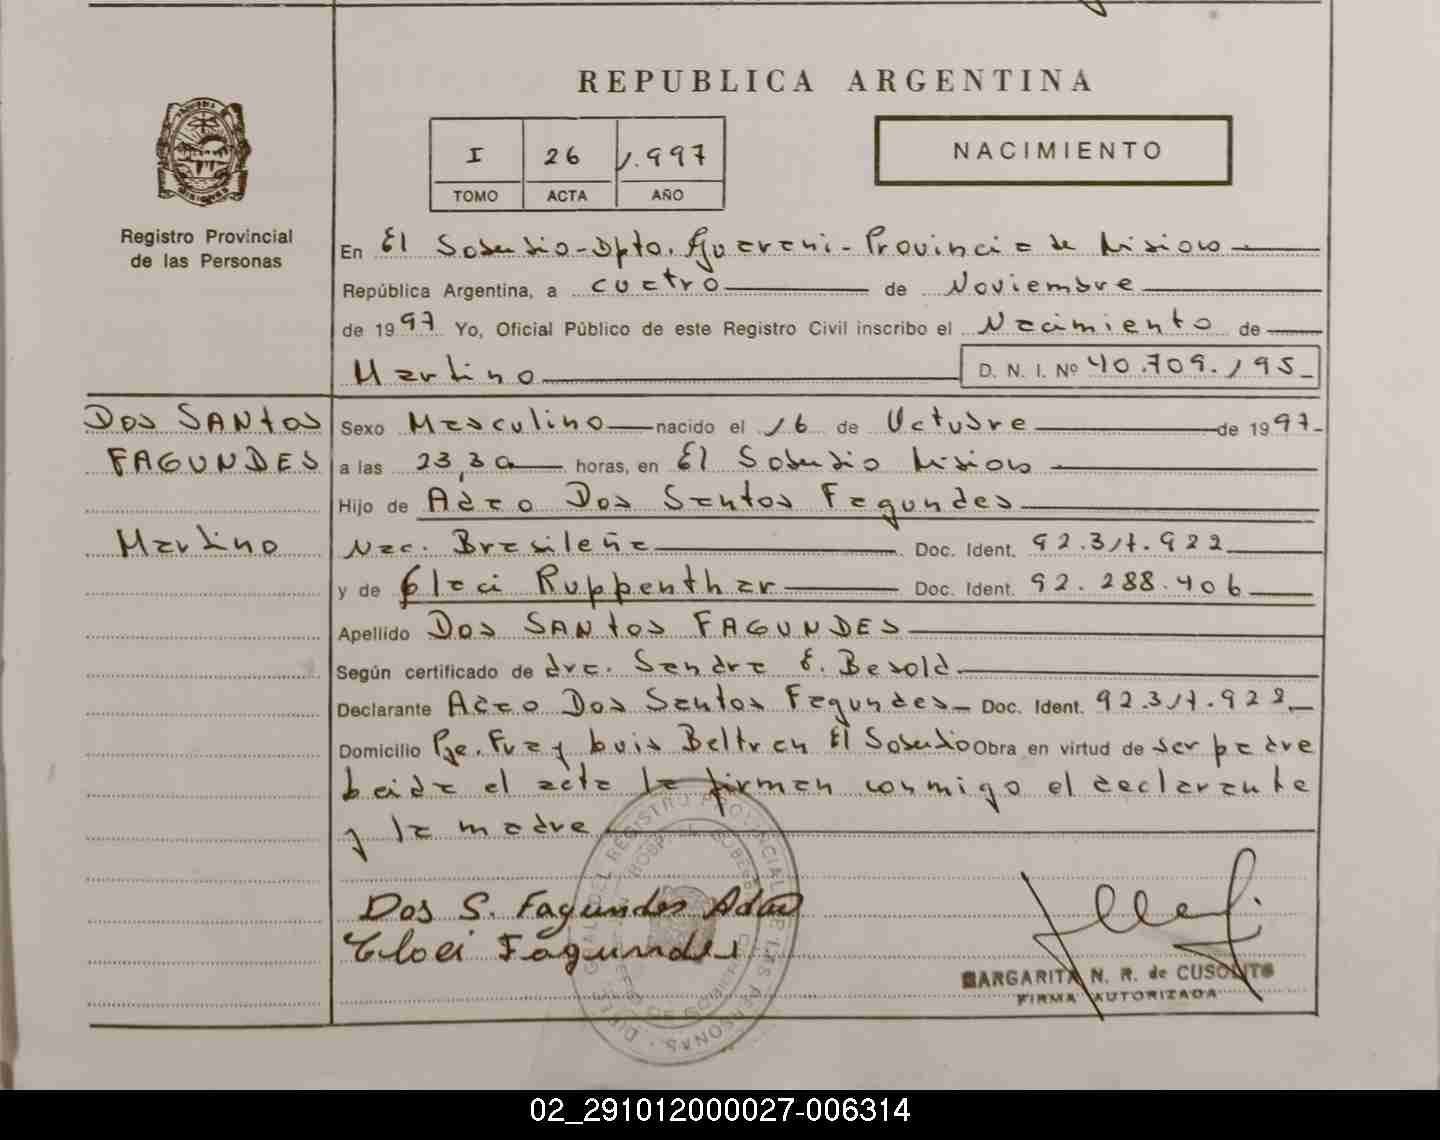 REPUBLICA ARGENTINA
I 26 1.997
TOMO ACTA AÑO
NACIMIENTO
Registro Provincial
de las Personas
En El Soberbio-Dpto. Guarani-Provincia de Misiones
República Argentina, a cuatro de Noviembre
de 1997 Yo, Oficial Público de este Registro Civil inscribo el Nacimiento de
Martino D. N. I. Nº 40.709.195
DOS SANTOS
FAGUNDES
Martino
Sexo Masculino nacido el 16 de Octubre de 1997
a las 23,30 horas, en El Soberbio Misiones
Hijo de Adao Dos Santos Fagundes
Nac. Brasileña Doc. Ident. 92.317.922
y de Eloci Ruppenthar Doc. Ident. 92.288.406
Apellido DOS SANTOS FAGUNDES
Según certificado de dra. Sandra E. Besold
Declarante Adao Dos Santos Fagundes Doc. Ident. 92.317.922
Domicilio Pje. Fray Luis Beltran El Soberbio Obra en virtud de ser padre
Leida el acta la firman conmigo el declarante
y la madre
Dos S. Fagundes Adao
Eloci Fagundes
MARGARITA N. R. de CUSOLITO
FIRMA AUTORIZADA
DEL REGISTRO PROVINCIAL DE LAS PERSONAS
02_291012000027-006314